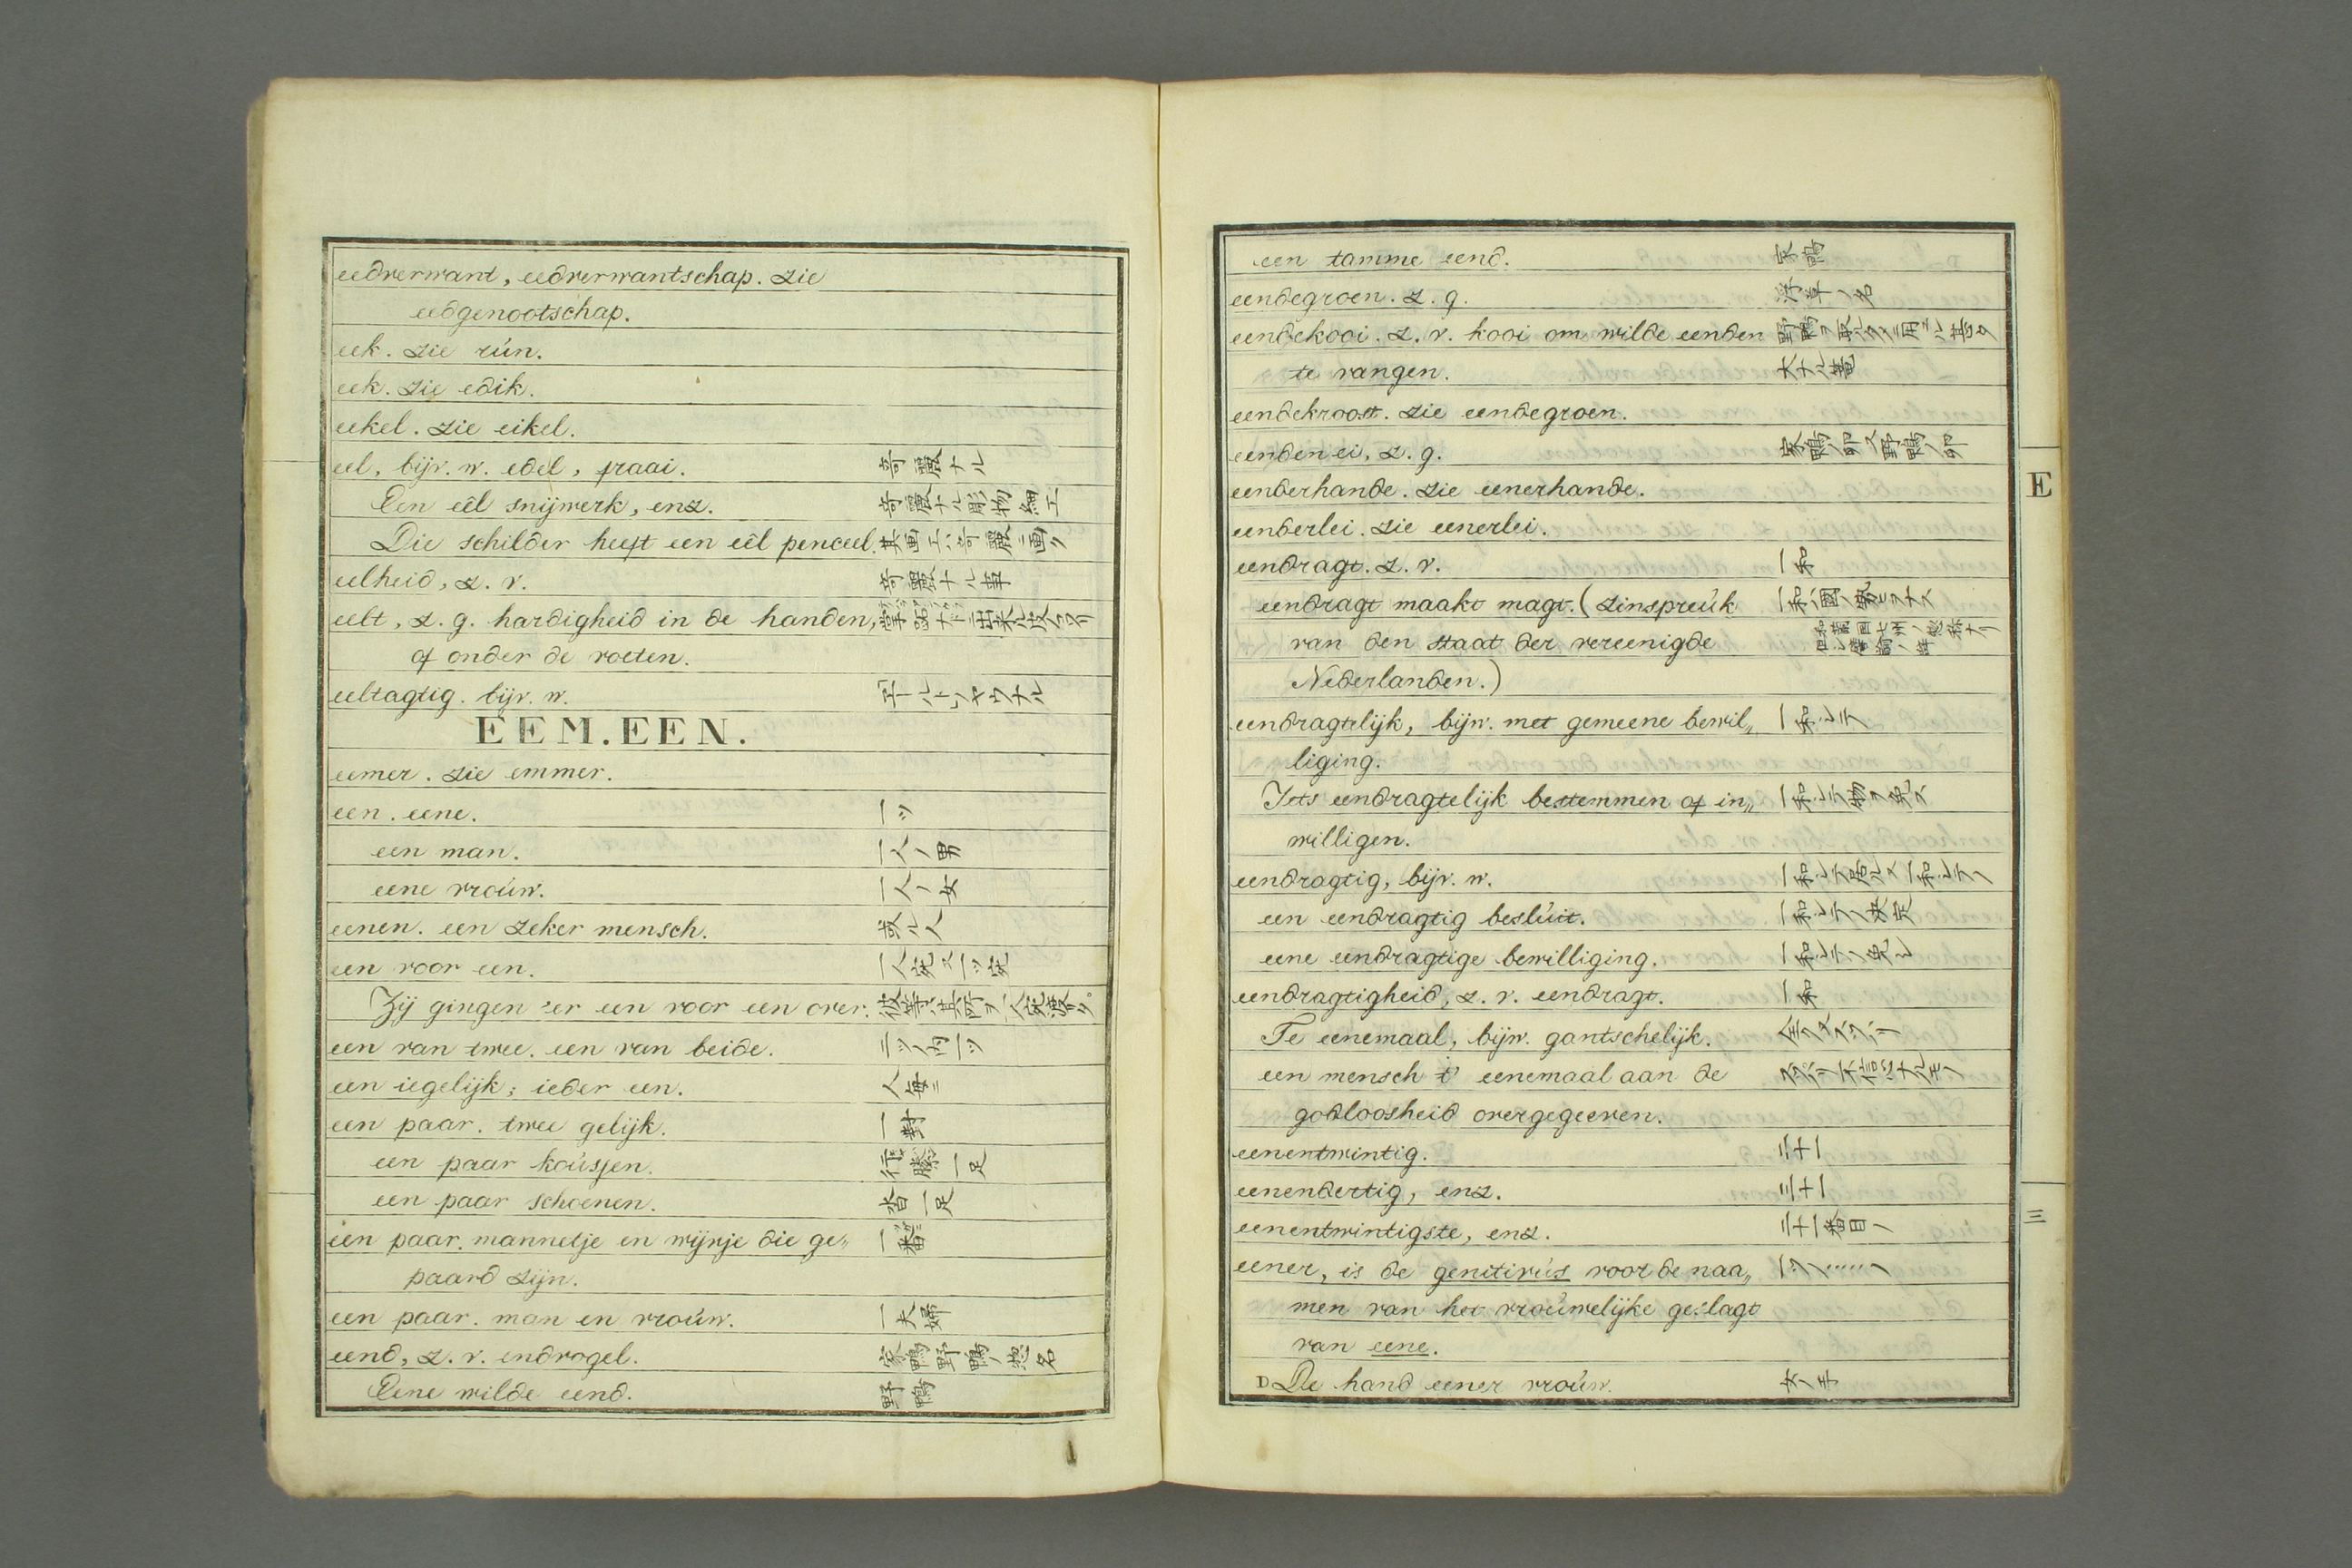 eedverwant, eedverwantschap. zie
eedgenootschap.
eek. zie rún.
eek. zie edik.
eekel. zie eikel.
eel, bijv. w. edel, fraai. 奇麗ナル
Een eêl snijwerk, enz. 奇麗ナル彫物細工
Die schilder heeft een eêl penceel. 其画工ハ奇麗ニ画ク
eelheid, z. v. 奇麗ナル事
eelt, z. g. hardigheid in de handen,
of onder de voeten.
eeltagtig. bijv. w. エールトノヤウナル
EEM. EEN.
eemer. zie emmer.
een. eene. 一ツ
een man. 一人ノ男
eene vroúw. 一人ノ女
eenen. een zeker mensch. 或ル人
een voor een. 一人宛又一ツ宛
Zij gingen 'er een voor een over.
een van twee. een van beide. 二ツノ内一ツ
een iegelijk; ieder een. 人毎ニ
een paar. twee gelijk. 一對
een paar koúsjen. 行縢一足
een paar schoenen. 沓一足
een paar. mannetje en wijvje die ge„ 一番
paard zijn.
een paar. man en vroúw. 一夫婦
eend, z. v. endvogel. 家鴨野鴨ノ惣名
Eene wilde eend. 野鴨
een tamme eend. 家鴨
eendegroen. z. g. 浮草ノ名
eendekooi. z. v. kooi om wilde eenden
te vangen. 大ナル篭
eendekroost. zie eendegroen.
eendenei, z. g. 家鴨ノ卵又野鴨ノ卵
eenderhande. zie eenerhande.
eenderlei. zie eenerlei.
eendragt. z. v. 一和
eendragt maakt magt. (zinspreúk
van den staat der vereenigde
Nederlanden.)
eendragtelijk, bijw. met gemeene bewil„ 一和シテ
liging.
Iets eendragtelijk bestemmen of in„ 一和シテ物ヲ免ス
willigen.
eendragtig, bijv. w. 一和シテ居ル又一和シテノ
een eendragtig beslúit. 一和シテノ決定
eene eendragtige bewilliging. 一和シテノ免シ
eendragtigheid, z. v. eendragt. 一和
Te eenemaal, bijw. gantschelijk.
een mensch t' eenemaal aan de
godloosheid overgegeeven.
eenentwintig. 二十一
eenendertig, enz. 三十一
eenentwintigste, enz. 二十一番目ノ
eener, is de genitivús voor de naa„ 一ツノ……ノ
men van het vroúwelijke geslagt
van eene.
D De hand eener vroúw. 女ノ手
E
三